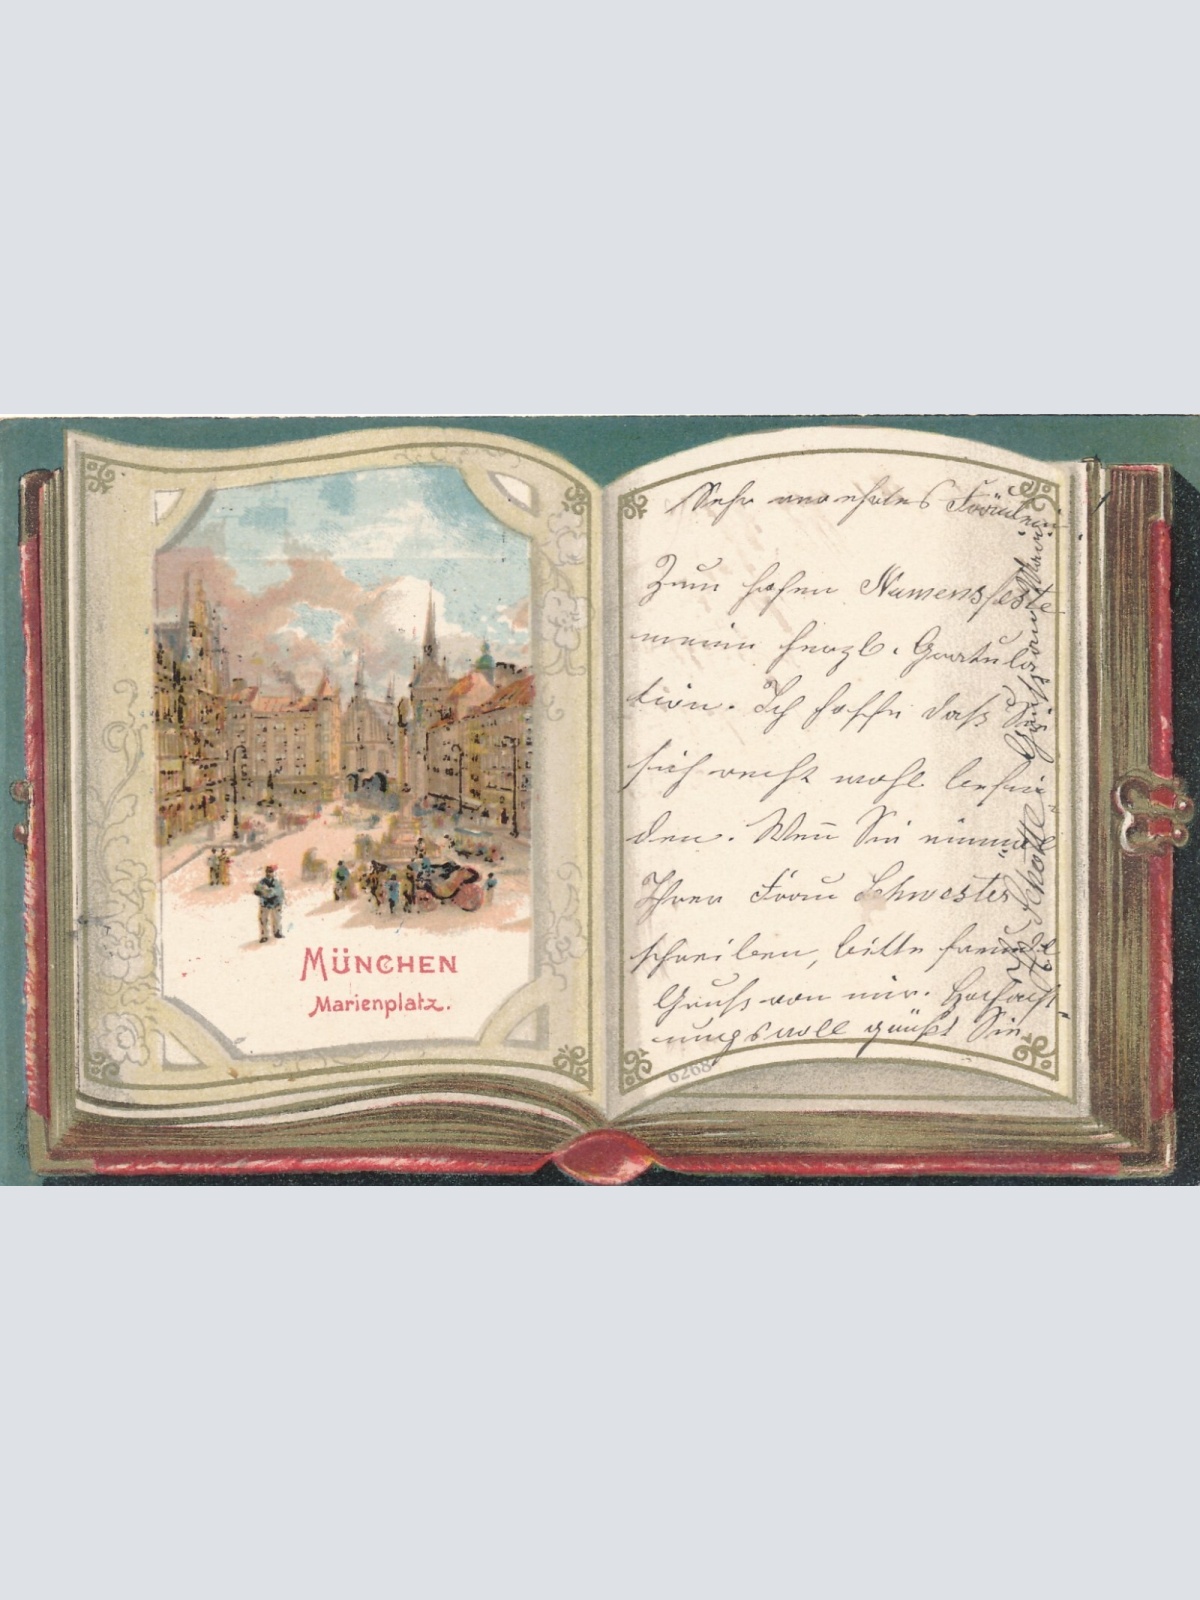 MÜNCHEN
Marienplatz.
Sehr verehrtes Fräulein
Zum hohen Namensfeste
meine herzl. Gratula
tion. Ich hoffe daß Sie
sich recht wohl befin-
den. Wen̄ Sie einmal
Ihrer Frau Schwester
schreiben, bitte freundl
Gruß von mir. Hochacht
ungsvoll grüßt Sie
Schötte
6268